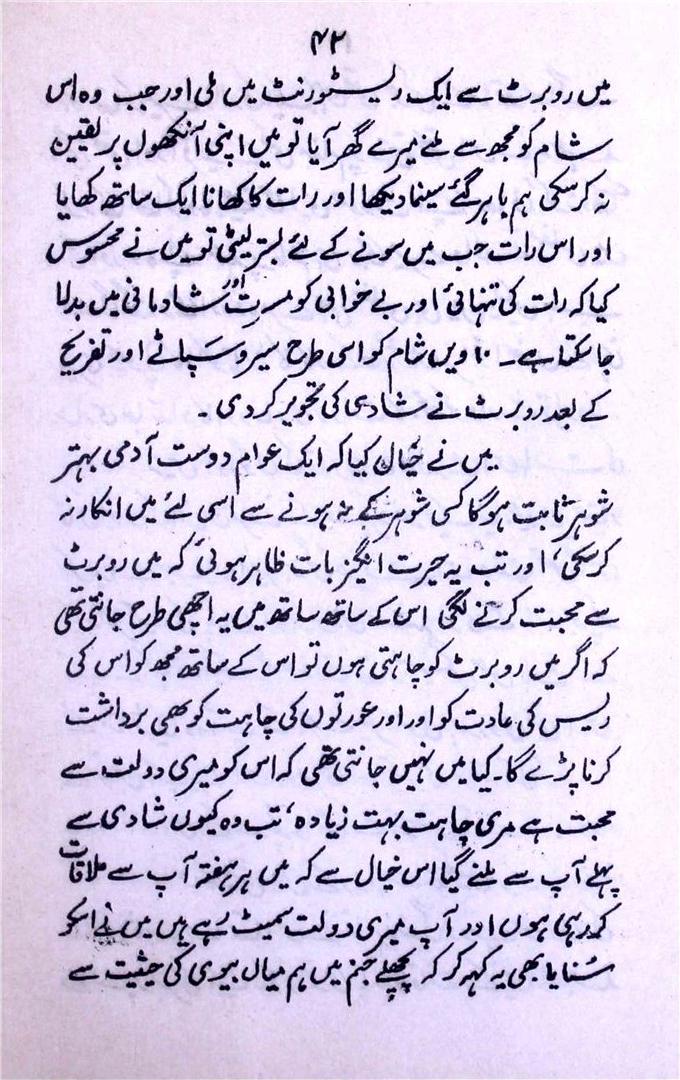 ۴۲
میں روبرٹ سے ایک ریسٹورنٹ میں ملی اور جب وہ اس
شام کو مجھ سے ملنے میرے گھر آیا تو میں اپنی آنکھوں پر یقین
نہ کرسکی ہم باہر گئے سینما دیکھا اور رات کا کھانا ایک ساتھ کھایا
اور اس رات جب میں سونے کے لئے بستر لیٹی تو میں نے محسوس
کیا کہ رات کی تنہائی اور بے خوابی کو مسرت اور شادمانی میں بدلا
جاسکتا ہے۔ ۱۰ ویں شام کو اسی طرح سیر و سپاٹے اور تفریح
کے بعد روبرٹ نے شادی کی تجویز کردی۔
میں نے خیال کیا کہ ایک عوام دوست آدمی بہتر
شوہر ثابت ہوگا کسی شوہر کے نہ ہونے سے اسی لئے میں انکار نہ
کرسکی، اور تب یہ حیرت انگیز بات ظاہر ہوئی کہ میں روبرٹ
سے محبت کرنے لگی اس کے ساتھ ساتھ میں یہ اچھی طرح جانتی تھی
کہ اگر میں روبرٹ کو چاہتی ہوں تو اس کے ساتھ مجھ کو اس کی
ریس کی عادت کو اور اور عورتوں کی چاہت کو بھی برداشت
کرنا پڑے گا۔ کیا میں نہیں جانتی تھی کہ اس کو میری دولت سے
محبت ہے مری چاہت بہت زیادہ، تب وہ کیوں شادی سے
پہلے آپ سے ملنے گیا اس خیال سے کہ میں ہر ہفتہ آپ سے ملاقات
کررہی ہوں اور آپ میری دولت سمیٹ رہے ہیں میں نے اسکو
سنایا بھی یہ کہہ کر کہ پچھلے جنم میں ہم میاں بیوی کی حیثیت سے